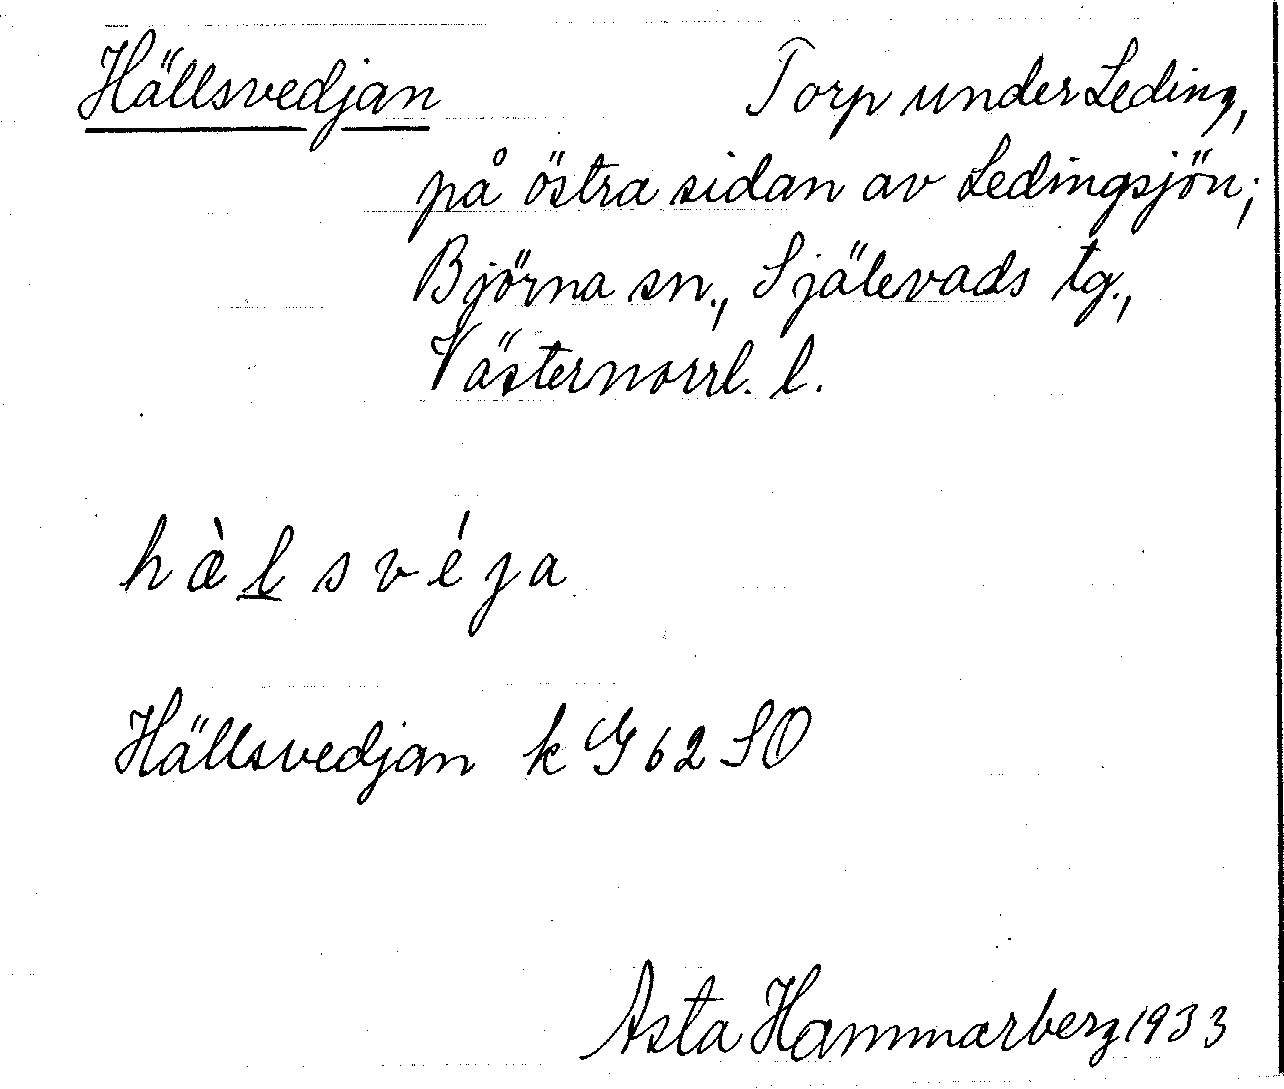 Hällsvedjan Torp under Leding,
på östra sidan av Ledingsjön;
Björna sn., Själevads tg.,
Västernorrl. l.
hæ̀l̲svéja
Hällsvedjan k G 62 SO
Asta Hammarberg 1933